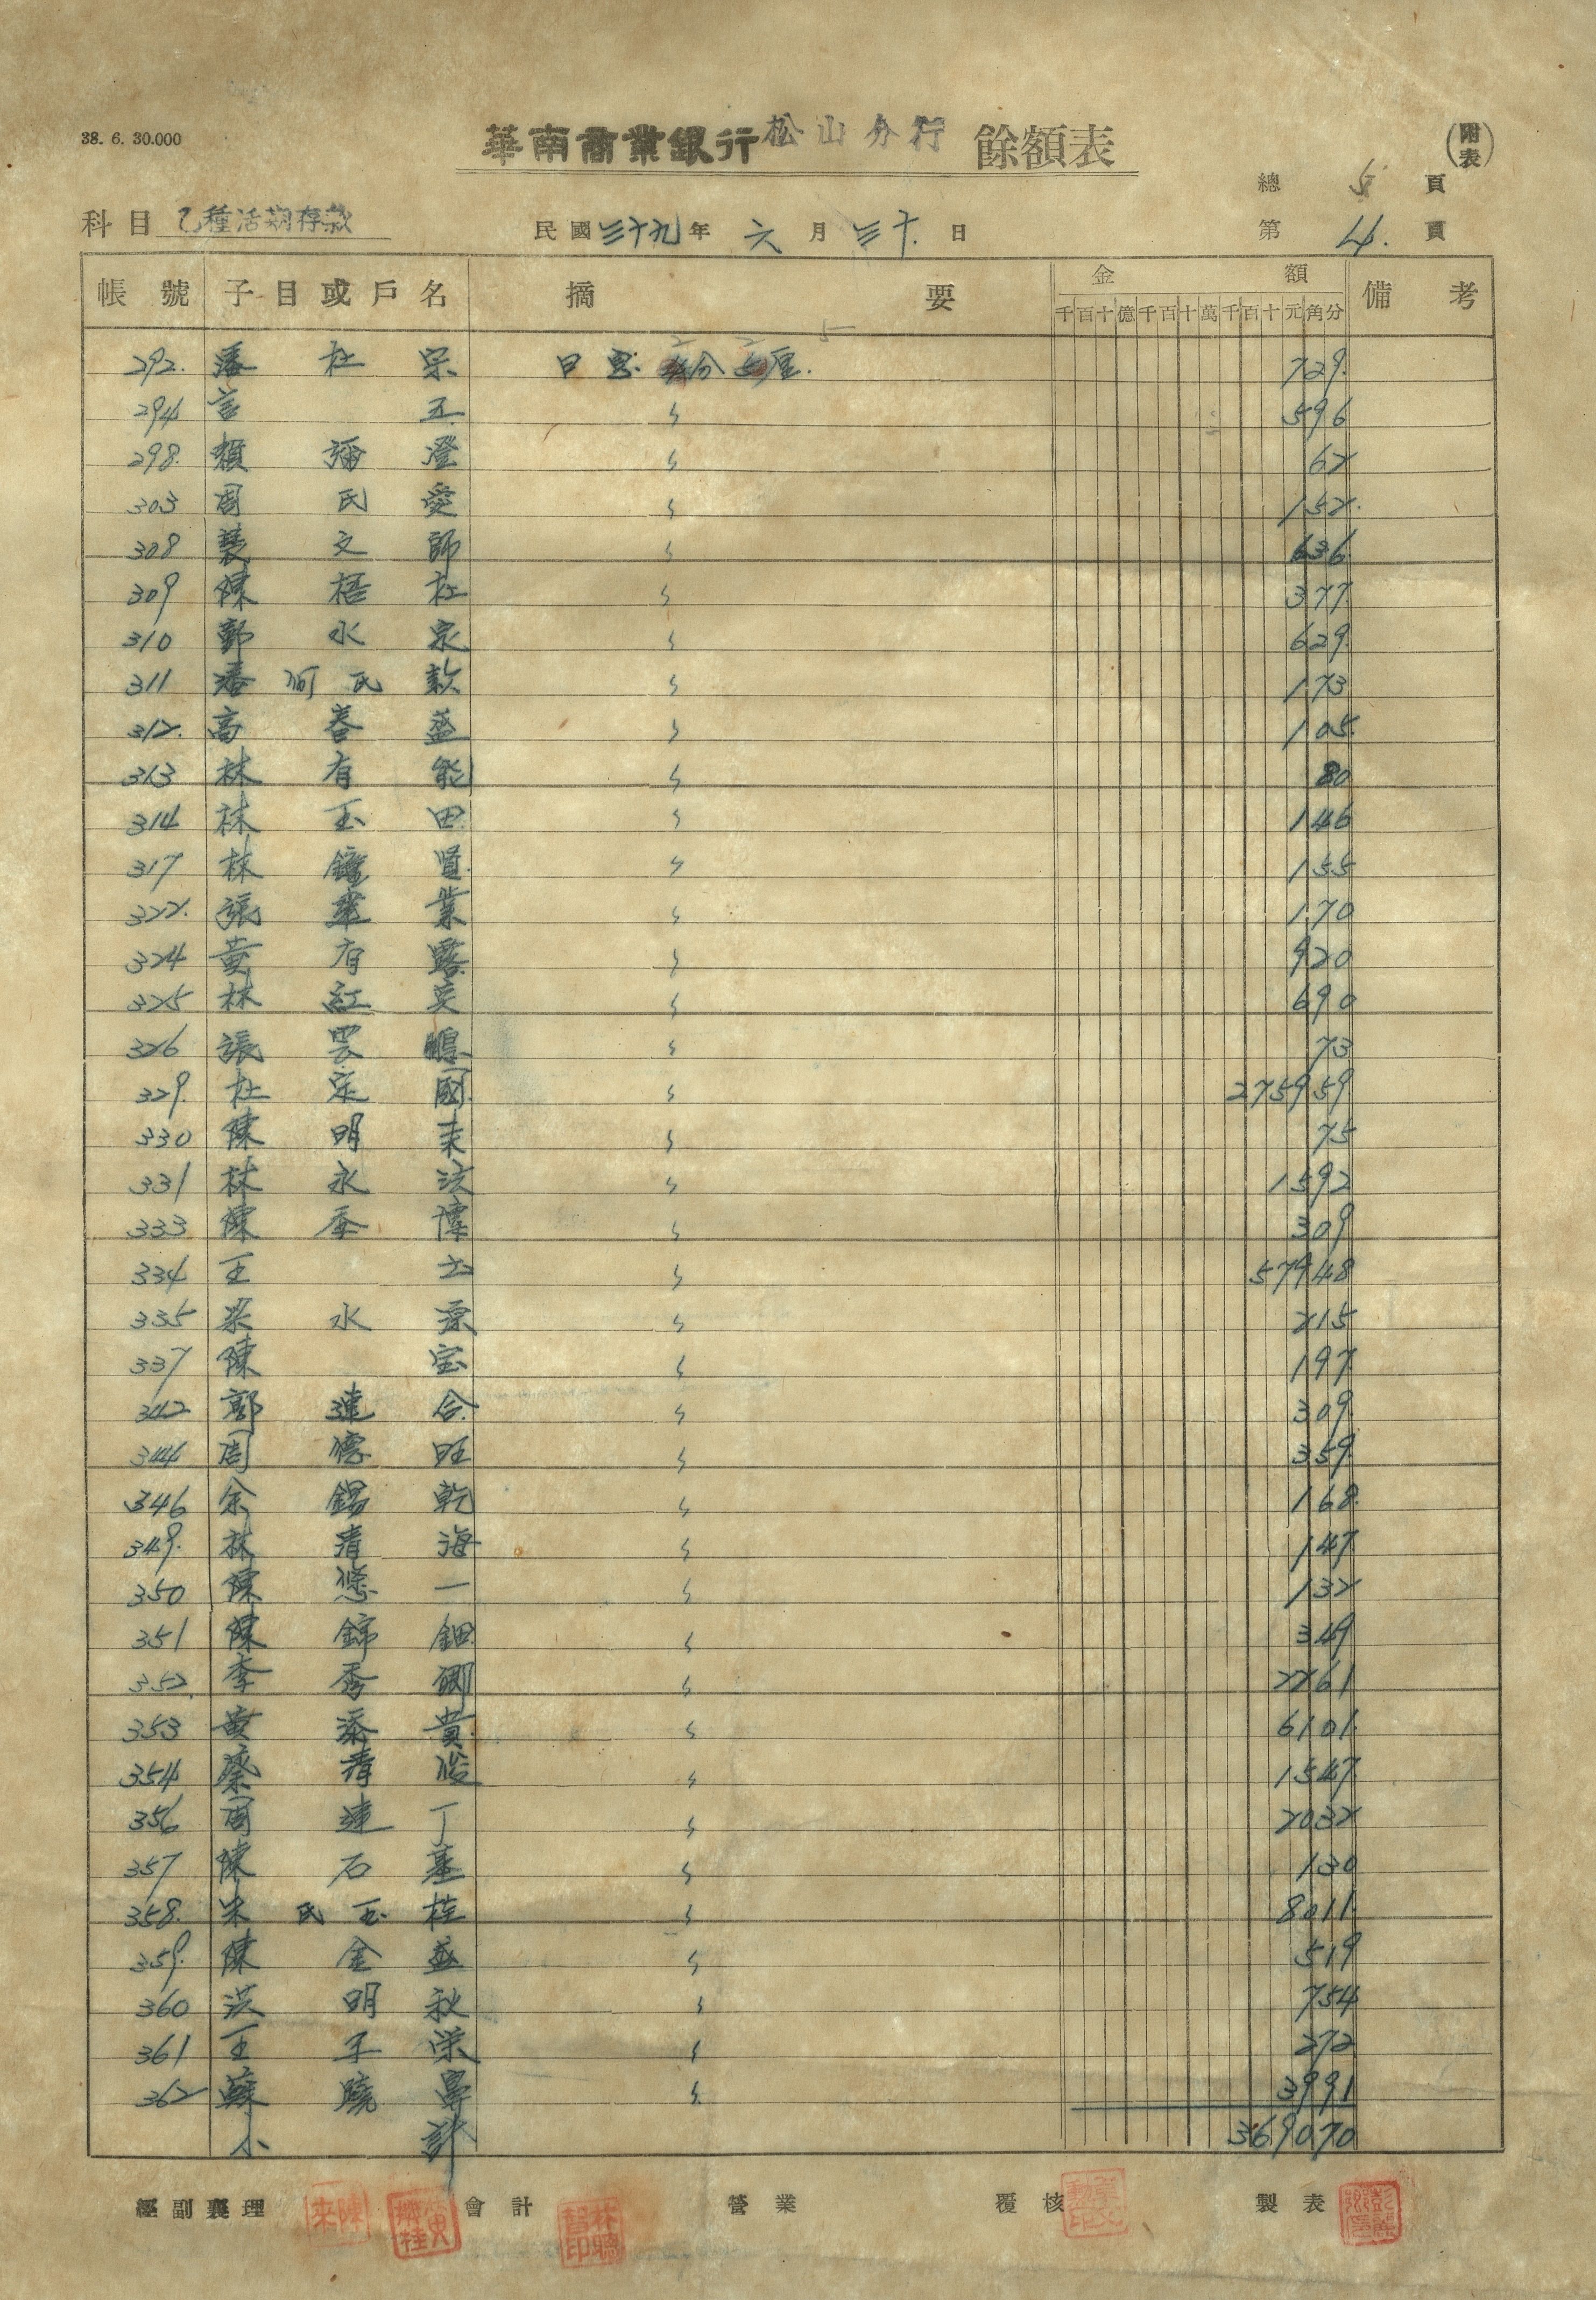 38. 6. 30.000
華南商業銀行松山分行 餘額表
(附表)
總 5 頁
科目 乙種活期存款 民國三十九年 六 月 三十 日 第 4 頁
帳號 子目或戶名 摘要 金額 備考
千百十億千百十萬千百十元角分
292. 潘杜宗 日息 分 厘 729
294 言五 〃 596
298. 賴彌澄 〃 62
303 周氏愛 〃 152
308 文師 〃 636
309 陳梧社 〃 377
310 鄭水泉 〃 629
311 潘何氏款 〃 173
312. 高春益 〃 105
313 林有能 〃 80
314 林玉田 〃 146
317 林鐘 〃 155
322. 張業 〃 170
324 黃有露 〃 920
325 林紅英 〃 690
326 張 〃 73
329. 杜定國 〃 275959
330 陳明来 〃 75
331 林永法 〃 1592
333 陳 〃 309
334 王 〃 57948
335 梁水源 〃 215
337 陳宝 〃 197
342 郭連合 〃 309
344 周德旺 〃 359
346 余錫乾 〃 168
349. 林清海 〃 147
350 陳一 〃 132
351 陳錦鈿 〃 349
352. 李秀卿 〃 2261
353 黃添貴 〃 6101
354 蔡清俊 〃 1547
356 周連丁 〃 2032
357 陳石基 〃 130
358. 朱氏玉桂 〃 8011
359. 陳金益 〃 519
360 洪明秋 〃 754
361 王子栄 〃 272
362 蘇曉 〃 3991
小計 369070
經副襄理 會計 營業 覆核 製表